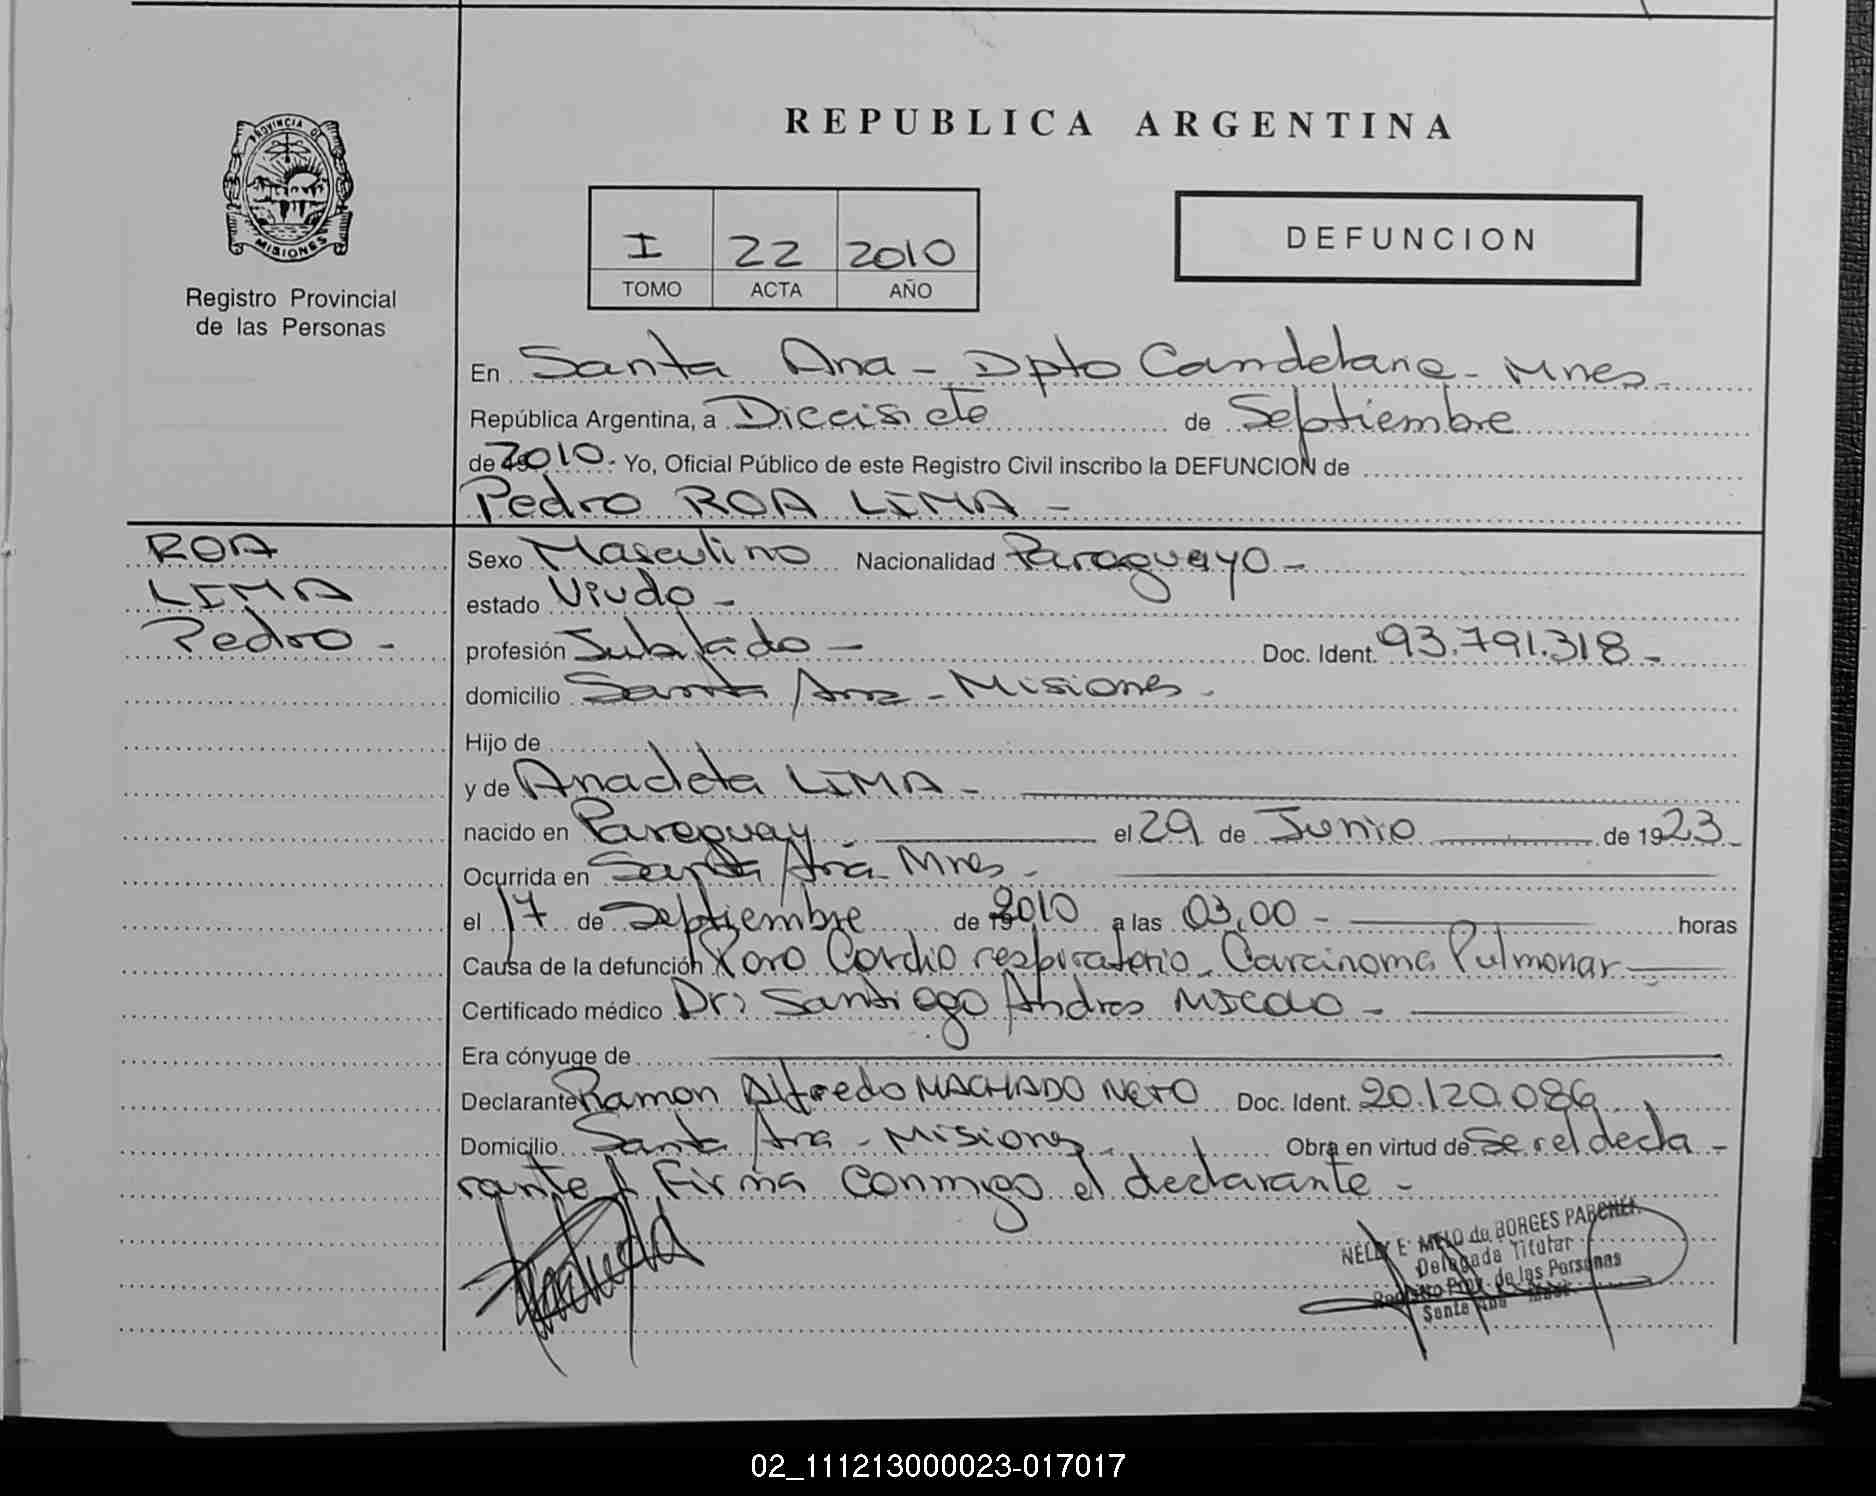 REPUBLICA ARGENTINA
PROVINCIA DE
MISIONES
Registro Provincial
de las Personas
I 22 2010
TOMO ACTA AÑO
DEFUNCION
En Santa Ana - Dpto Candelaria - Mnes -
República Argentina, a Diecisiete de Septiembre
de 2010.- Yo, Oficial Público de este Registro Civil inscribo la DEFUNCION de
Pedro ROA LIMA -
ROA
LIMA
Pedro -
Sexo Masculino Nacionalidad Paraguayo -
estado Viudo -
profesión Jubilado - Doc. Ident. 93.791.318 -
domicilio Santa Ana - Misiones -
Hijo de
y de Anacleta LIMA -
nacido en Paraguay el 29 de Junio de 1923 -
Ocurrida en Santa Ana - Mnes -
el 17 de Septiembre de 2010 a las 03,00 - horas
Causa de la defunción Paro Cardio respiratorio - Carcinoma Pulmonar
Certificado médico Dr: Santiago Andres -
Era cónyuge de
Declarante Ramon Alfredo MACHADO NETO Doc. Ident. 20.120.086
Domicilio Santa Ana - Misiones - Obra en virtud de Ser el decla -
rante / Firma conmigo el declarante -
NELLY E. MELO de BORGES
Delegada Titular
Registro Prov. de las Personas
Santa Ana
02_111213000023-017017